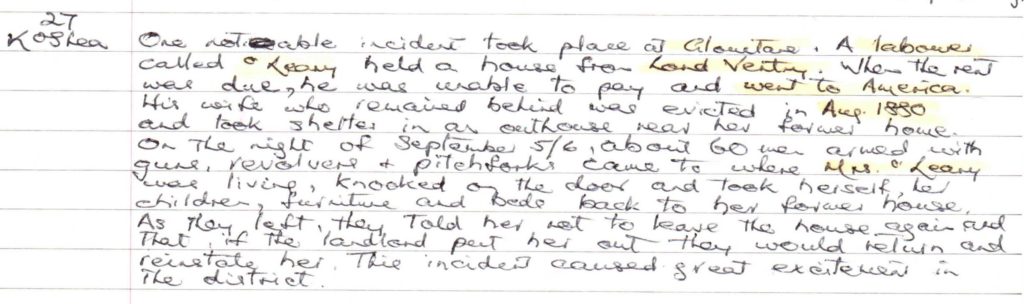 27
KOShea One noticable incident took place at Clountane. A labourer
called O'Leary held a house from Lord Ventry. When the rent
was due, he was unable to pay and went to America.
His wife who remained behind was evicted in Aug. 1880
and took shelter in an outhouse near her former home.
On the night of September 5/6, about 60 men armed with
guns, revolvers + pitchforks came to where Mrs. O'Leary
was living, knocked on the door and took herself, her
children, furniture and beds back to her former house.
As they left, they told her not to leave the house again and
that, if the landlord put her out they would return and
reinstate her. This incident caused great excitement in
the district.